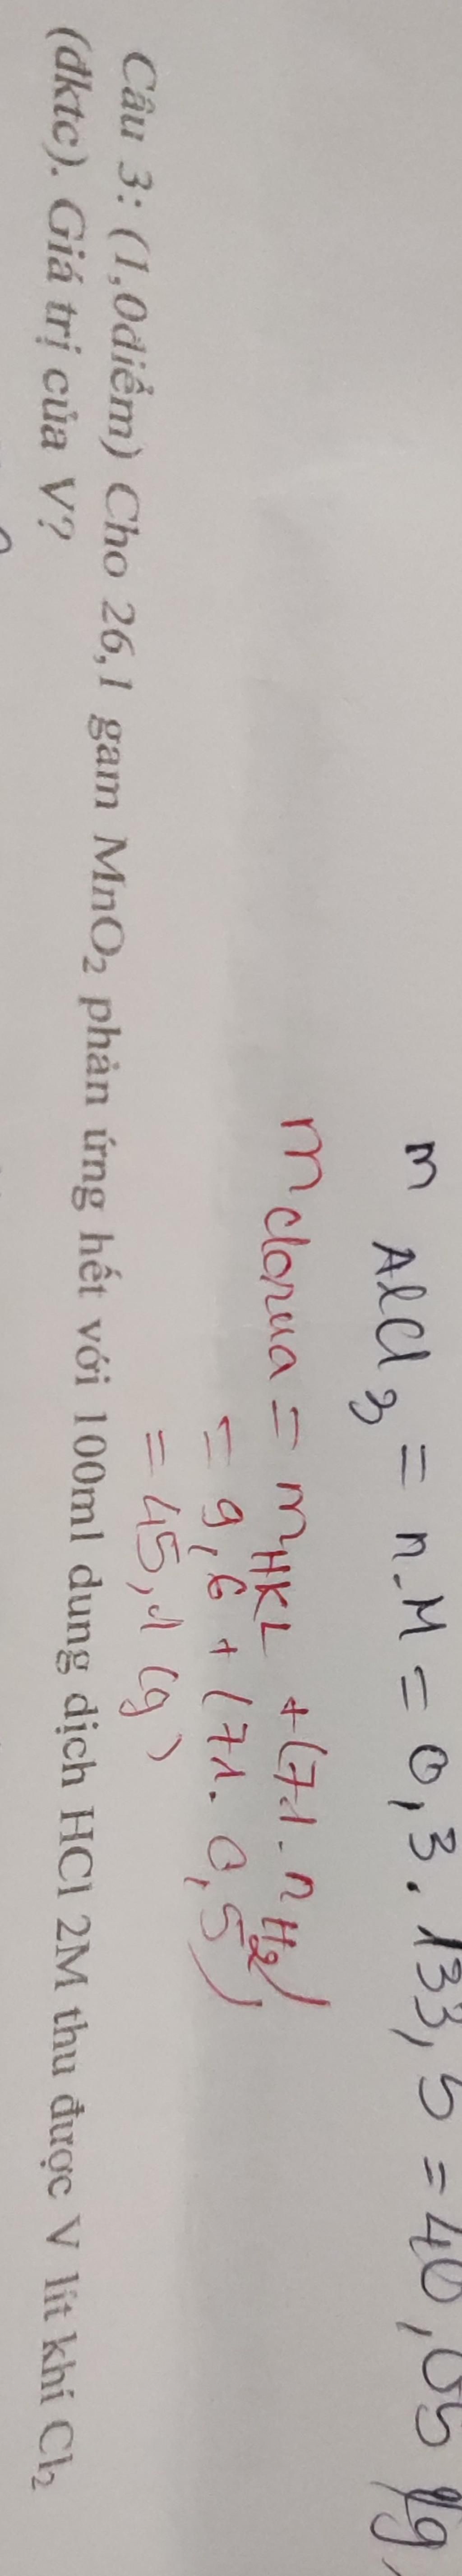 m AlCl3 = n.M = 0,3 . 133,5 = 40,05 (g)
m clorua = mHKL + (71.nH2)
= 9,6 + (71.0,5)
= 45,1 (g)
Câu 3: (1,0điểm) Cho 26,1 gam MnO2 phản ứng hết với 100ml dung dịch HCl 2M thu được V lít khí Cl2
(đktc). Giá trị của V?